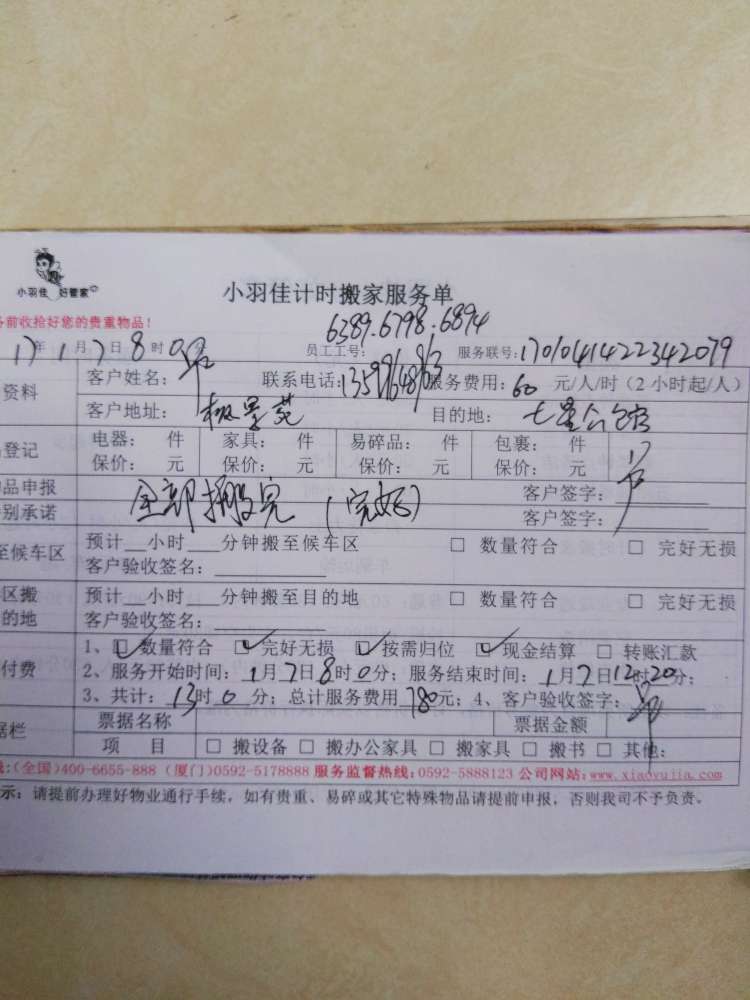 小羽佳 好管家
小羽佳计时搬家服务单
务前收拾好您的贵重物品！
6389.6798.6894
17年1月7日8时0分 员工工号： 服务联号：1701041422342079
资料 客户姓名： 联系电话： 服务费用：60元/人/时（2小时起/人）
客户地址：极景苑 目的地：七星公馆
品登记 电器： 件 家具： 件 易碎品： 件 包裹： 件
保价： 元 保价： 元 保价： 元 保价： 元
品申报 全部搬完（完好） 客户签字：
别承诺 客户签字：
至候车区 预计__小时___分钟搬至候车区 □ 数量符合 □ 完好无损
客户验收签名：
区搬 预计__小时___分钟搬至目的地 □ 数量符合 □ 完好无损
的地 客户验收签名：
1、☑数量符合 ☑完好无损 ☑按需归位 ☑现金结算 □ 转账汇款
付费 2、服务开始时间：1月7日8时0分；服务结束时间：1月7日12时20分；
3、共计：13时0分；总计服务费用780元；4、客户验收签字：
据栏 票据名称 票据金额
项 目 □ 搬设备 □ 搬办公家具 □ 搬家具 □ 搬书 □ 其他：
线:(全国)400-6655-888 (厦门)0592-5178888 服务监督热线:0592-5888123 公司网站:www.xiaoyujia.com
示：请提前办理好物业通行手续，如有贵重、易碎或其它特殊物品请提前申报，否则我司不予负责。